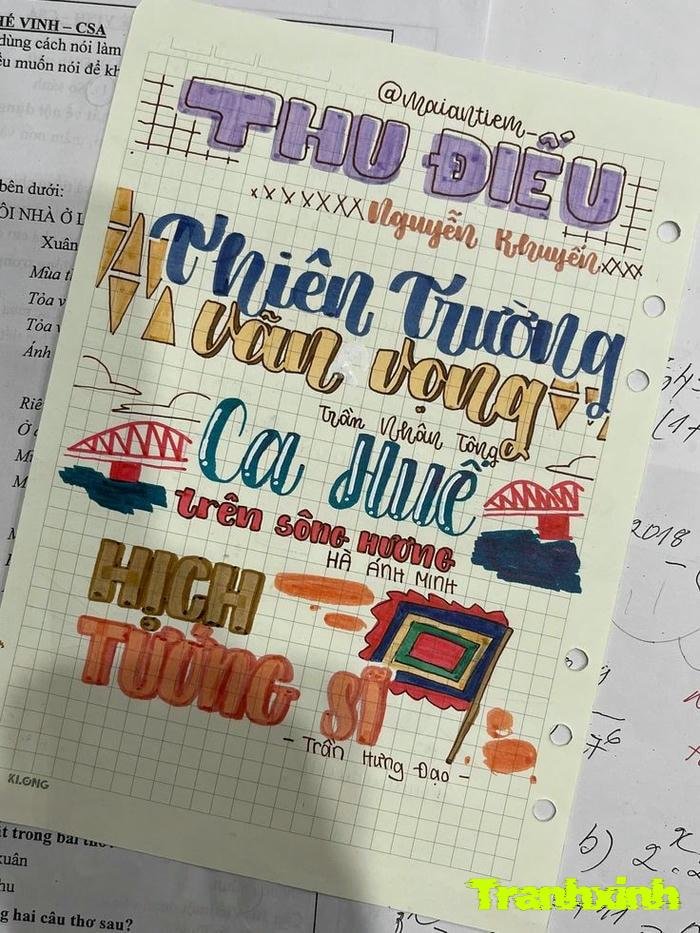 HẾ VINH – CSA
dùng cách nói làm
ều muốn nói để kh
@maiantiem_
THU ĐIẾU
Nguyễn Khuyến
bên dưới:
ÔI NHÀ Ở L
Xuân
Mùa t
Tỏa v
Tỏa v
Ánh
Thiên Trường
vãn vọng
Riê
Trần Nhân Tông
Ca Huế
trên sông Hương
HÀ ÁNH MINH
2018
HỊCH
TƯỚNG SĨ
- Trần Hưng Đạo -
KLONG
ất trong bài thơ?
xuân
hu
g hai câu thơ sau?
b) 2
Tranhxinh